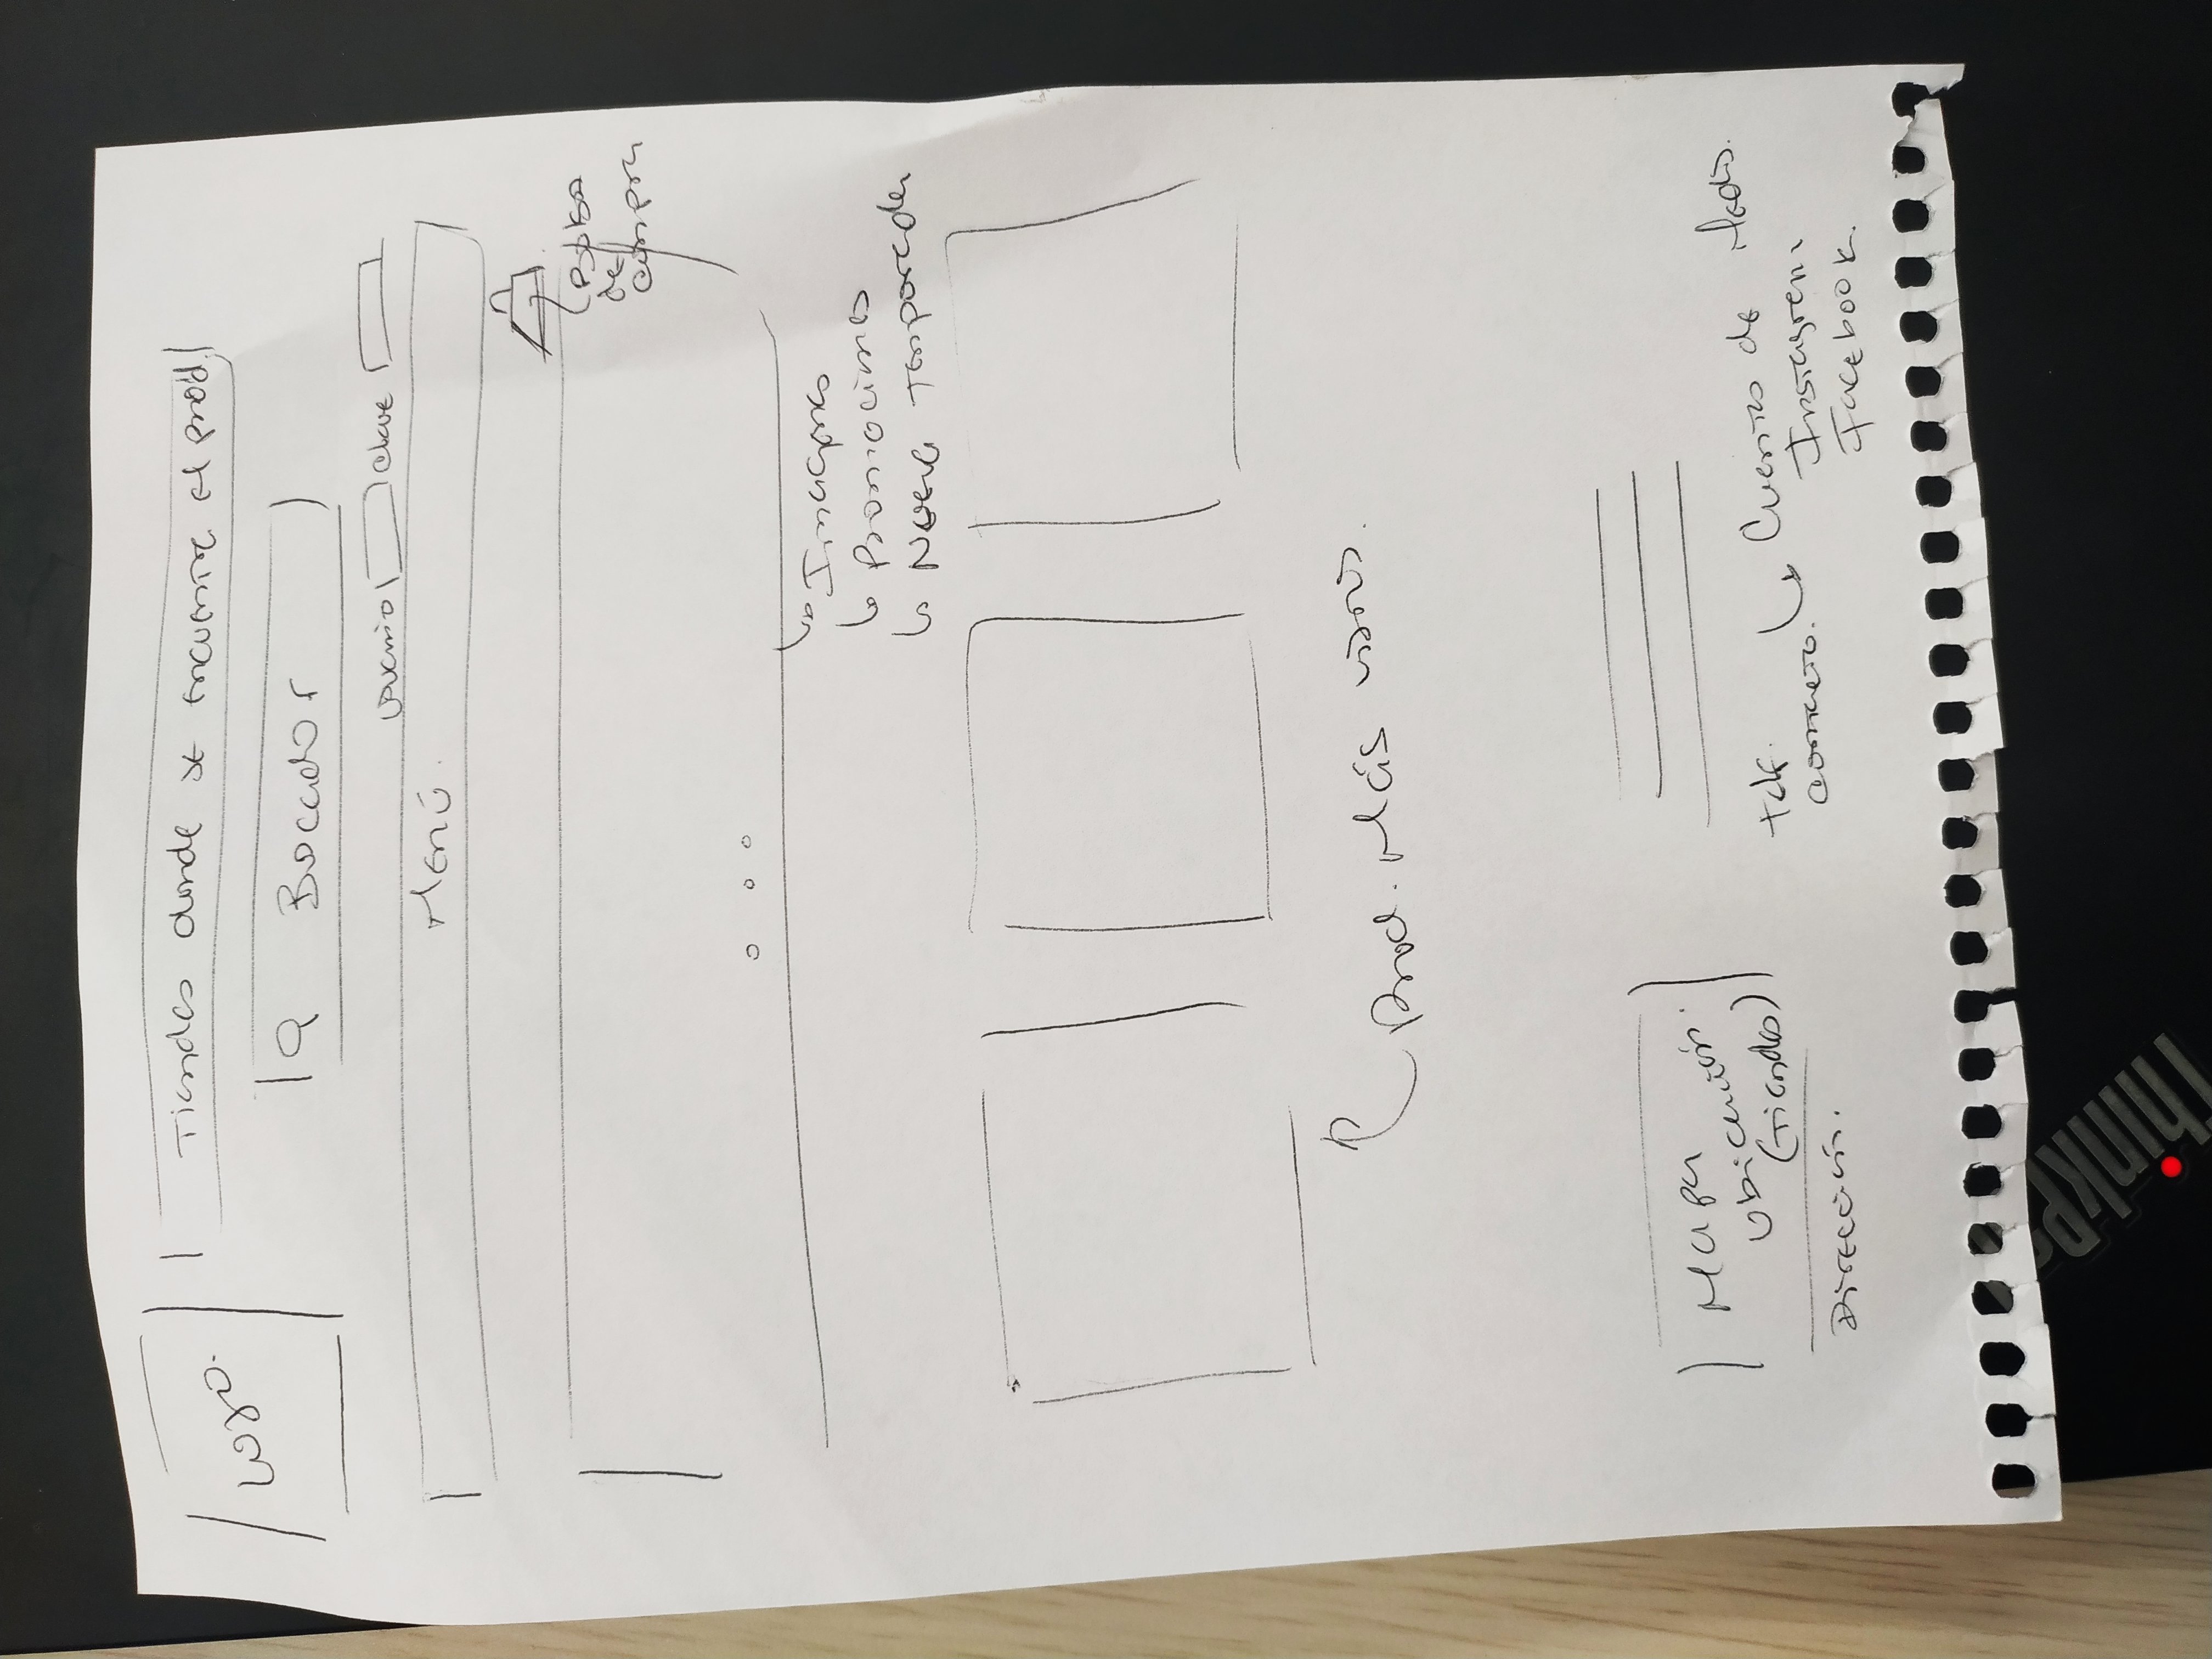 Logo.
Tiendas donde se encuentre el prod.
Buscador
Usuario
clave
Menú.
Bolsa
de
compra
Imagenes
Promociones
Nueva temporada
Prod. Más vistos.
Mapa
Ubicación.
(Tiendas)
Dirección.
Telf.
contacto.
Cuentas de Redes.
Instagram
Facebook.
ThinkP